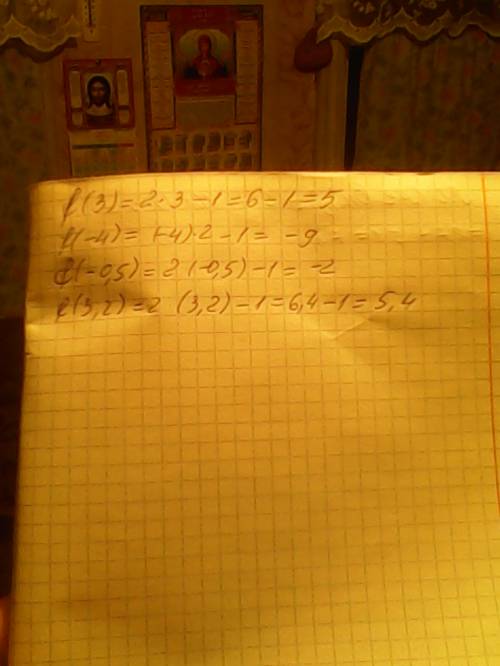 f(3)=2·3-1=6-1=5
f(-4)=(-4)·2-1=-9
f(-0,5)=2(-0,5)-1=-2
f(3,2)=2 (3,2)-1=6,4-1=5,4